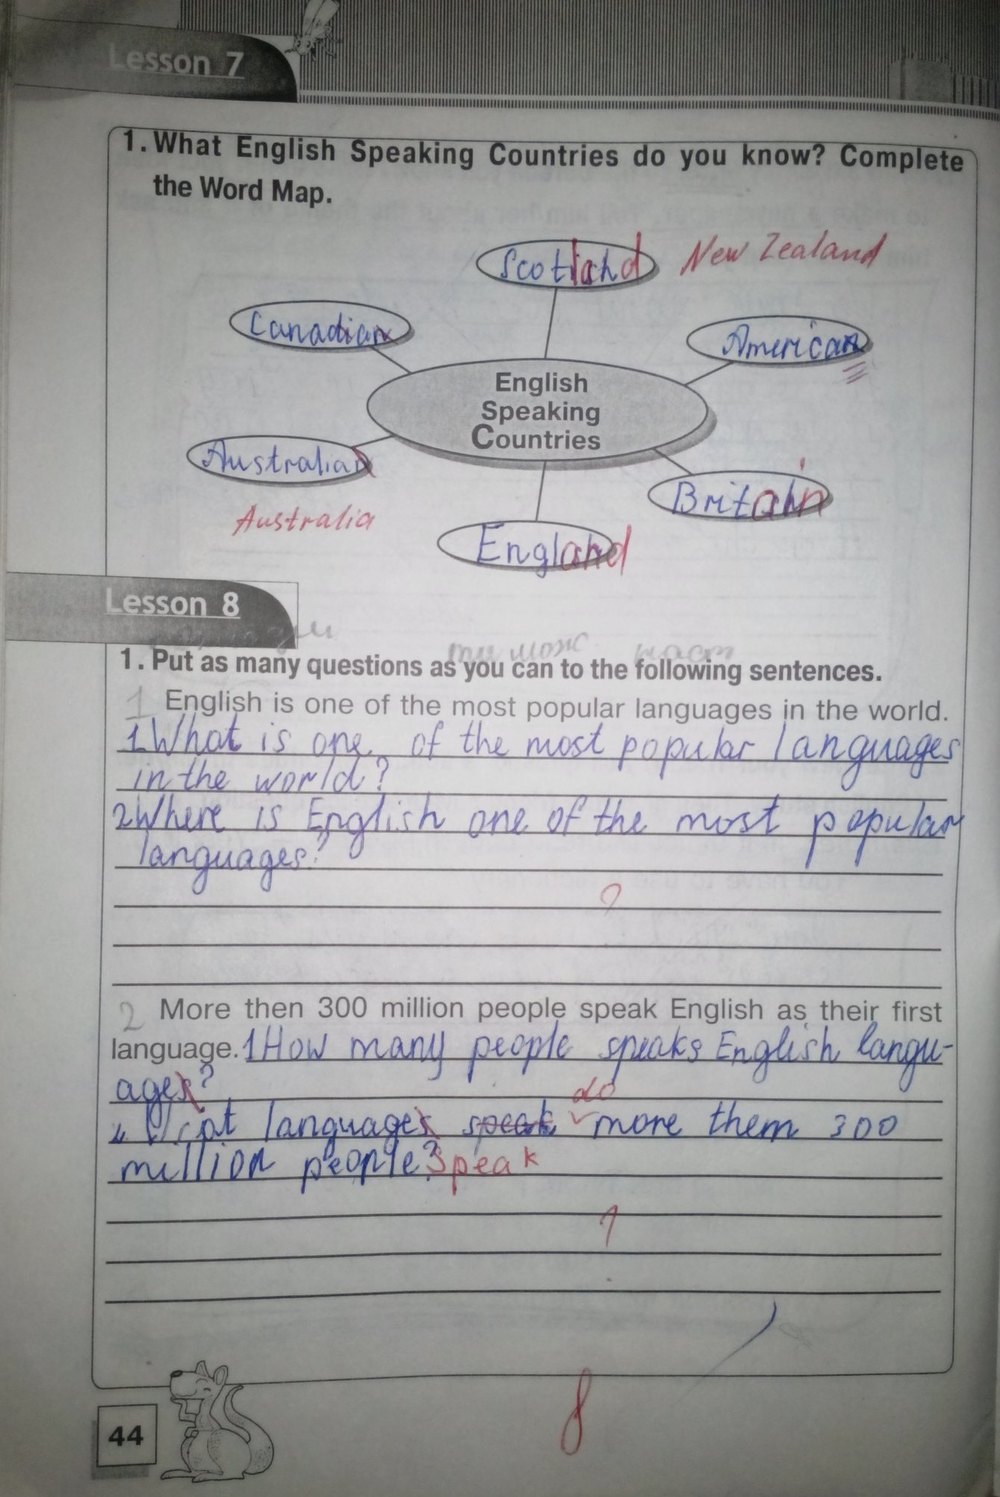 Lesson 7
1. What English Speaking Countries do you know? Complete
the Word Map.
Scotland New Zealand
Canadian
American
English
Speaking
Countries
Australian
Britain
Australia
England
Lesson 8
1. Put as many questions as you can to the following sentences.
1 English is one of the most popular languages in the world.
1 What is one of the most popular languages
in the world?
2 Where is English one of the most popular
languages?
?
2 More then 300 million people speak English as their first
language. 1 How many people speaks English langu-
ages?
do
languages speak more them 300
million people? speak
?
8
44